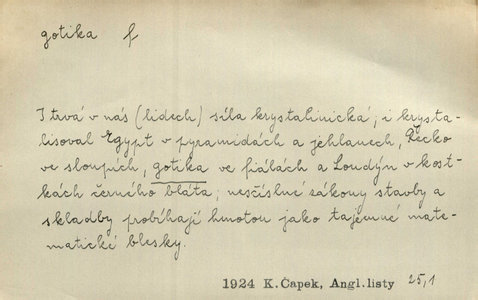 gotika f
I trvá v nás (lidech) síla krystalinická; i krysta-
lisoval Egypt v pyramidách a jehlanech, Řecko
ve sloupích, gotika ve fiálách a Londýn v kost-
kách černého bláta; nesčíslné zákony stavby a
skladby probíhají hmotou jako tajemné mate-
matické blesky.
1924 K. Čapek, Angl. listy 25,1